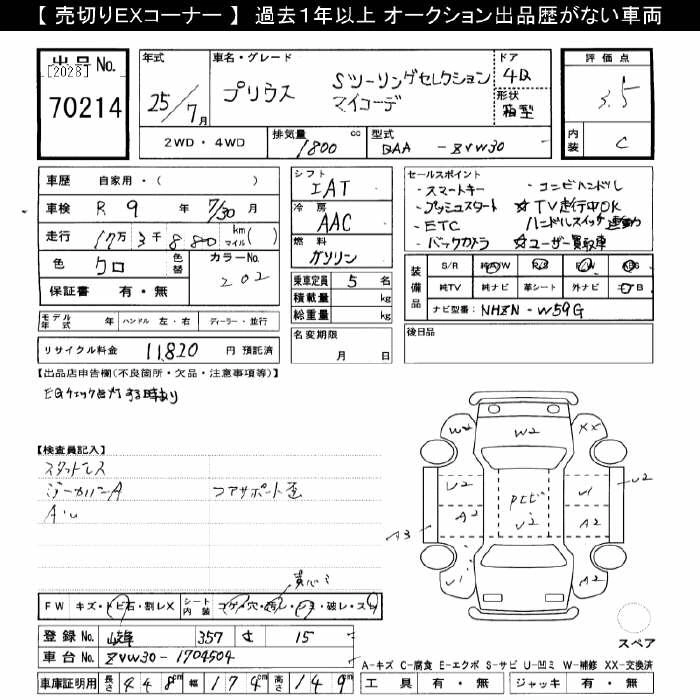 【 売切りEXコーナー 】 過去1年以上 オークション出品歴がない車両
出品No.
[2028]
70214
年式
25/7月
車名・グレード
プリウス Sツーリングセレクション
マイコーデ
ドア
4D
形状
箱型
評価点
3.5
内装
C
2WD・4WD
排気量 1800 cc
型式 DAA - ZVW30
車歴 自家用・( )
車検 R 9 年 7/30 月
走行 17万 3千 880 km マイル ( )
色 クロ 色替
カラーNo. 202
保証書 有・無
シフト
IAT
冷房
AAC
燃料
ガソリン
乗車定員 5 名
積載量 kg
総重量 kg
セールスポイント
・スマートキー ・コンビハンドル
・プッシュスタート ☆TV走行中OK
・ETC ハンドルスイッチ連動
・バックカメラ ☆ユーザー買取車
装備品
S/R 純AW P/S P/W ABS
純TV 純ナビ 革シート 外ナビ エB
ナビ型番: NHZN - W59G
モデル年式 年 ハンドル 左・右 ディーラー・並行
リサイクル料金 11,820 円 預託済
名変期限
月 日
後日品
【出品店申告欄(不良箇所・欠品・注意事項等)】
EGチェック点灯する時あり
【検査員記入】
スタットレス
コアサポート歪
W2 W2 XX
U2 U1 U2
A2 U2 A2
A3
A2
FW キズ・トビ石・割レX
シート内装 コゲ・穴・汚レ・シミ・破レ・スレ
登録No. 岐阜 357 す 15
車台No. ZVW30-1704504
車庫証明用 長さ 448cm 幅 174cm 高さ 149cm
スペア
A-キズ C-腐食 E-エクボ S-サビ U-凹ミ W-補修 XX-交換済
工具 有・無 ジャッキ 有・無